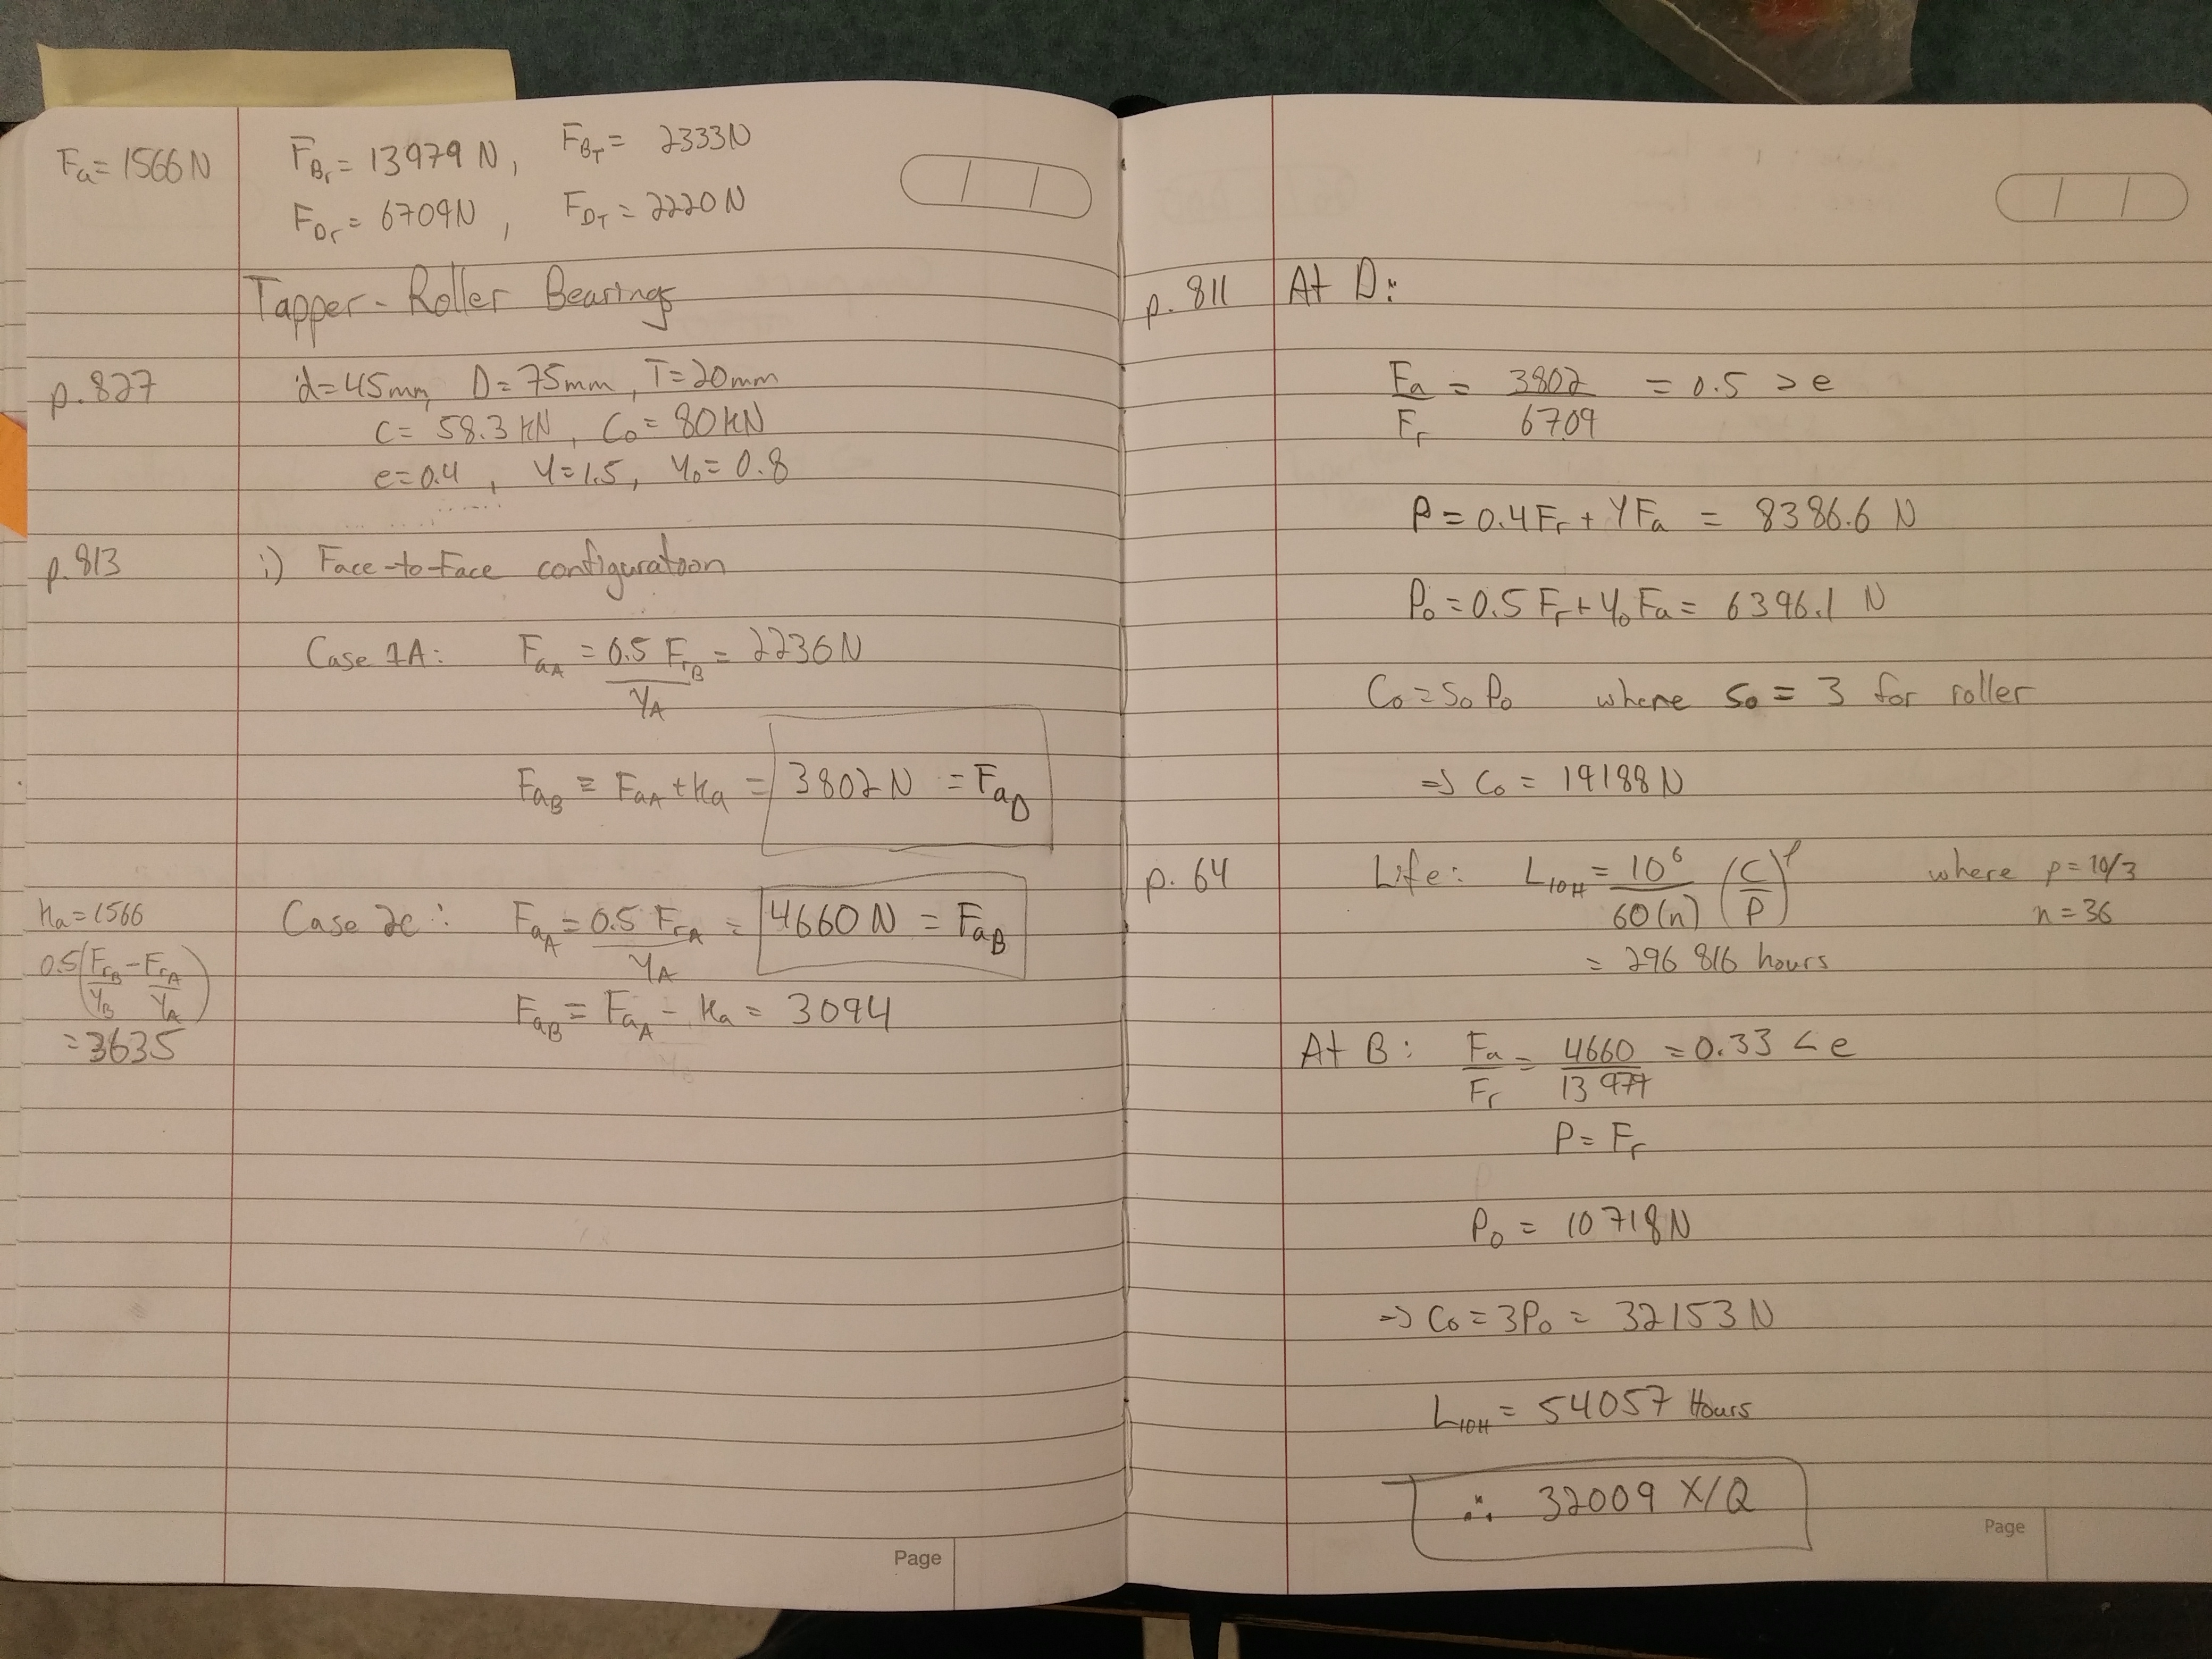 Fa = 1566 N
F_Br = 13979 N, F_BT = 2333N
F_Dr = 6709N, F_DT = 2220 N
Tapper - Roller Bearings
p. 827
d = 45mm, D = 75mm, T = 20mm
C = 58.3 kN, Co = 80 kN
e = 0.4, Y = 1.5, Yo = 0.8
p. 813
i) Face-to-Face configuration
Case 1A: F_aA = 0.5 F_rB / Y_A = 2236 N
F_aB = F_aA + Ka = 3802 N = F_aD
Ka = 1566
0.5 (F_rB / Y_B - F_rA / Y_A)
= 3635
Case 2c: F_aA = 0.5 F_rA / Y_A = 4660 N = F_aB
F_aB = F_aA - Ka = 3094
Page
p. 811
At D:
Fa / Fr = 3802 / 6709 = 0.5 > e
P = 0.4 Fr + Y Fa = 8386.6 N
Po = 0.5 Fr + Yo Fa = 6396.1 N
Co = So Po where so = 3 for roller
=> Co = 19188 N
p. 64
Life: L10H = 10^6 / 60(n) (C / P)^p where p = 10/3
n = 36
= 296 816 hours
At B: Fa / Fr = 4660 / 13 979 = 0.33 < e
P = Fr
Po = 10718N
=> Co = 3Po = 32153 N
L10H = 54057 Hours
∴ 32009 X/Q
Page